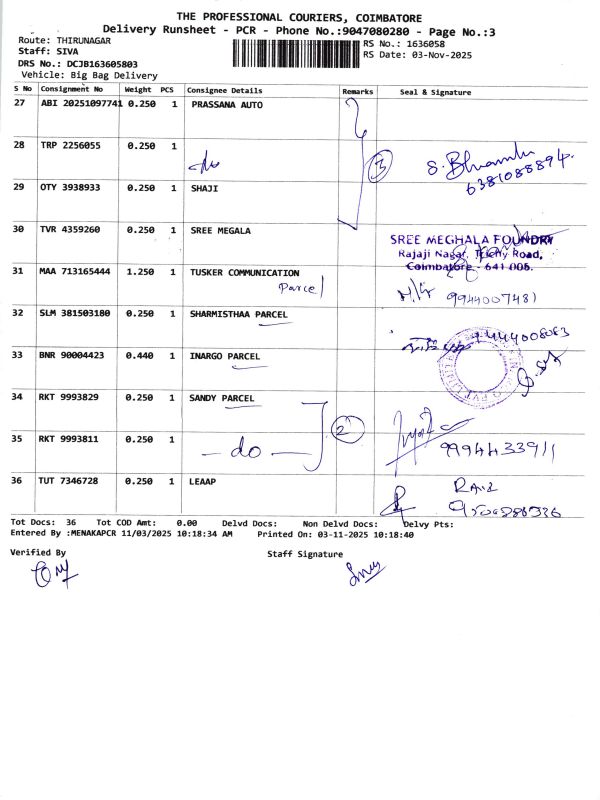 THE PROFESSIONAL COURIERS, COIMBATORE
Delivery Runsheet - PCR - Phone No.:9047080280 - Page No.:3
Route: THIRUNAGAR
RS No.: 1636058
Staff: SIVA
RS Date: 03-Nov-2025
DRS No.: DCJB163605803
Vehicle: Big Bag Delivery
S No Consignment No Weight PCS Consignee Details Remarks Seal & Signature
27 ABI 20251097741 0.250 1 PRASSANA AUTO
28 TRP 2256055 0.250 1
do
3
6381088894
29 OTY 3938933 0.250 1 SHAJI
30 TVR 4359260 0.250 1 SREE MEGALA
SREE MEGHALA FOUNDRY
Rajaji Nagar, Trichy Road,
Coimbatore - 641 005.
31 MAA 713165444 1.250 1 TUSKER COMMUNICATION
Parcel
9944007481
32 SLM 381503180 0.250 1 SHARMISTHAA PARCEL
33 BNR 90004423 0.440 1 INARGO PARCEL
34 RKT 9993829 0.250 1 SANDY PARCEL
2
35 RKT 9993811 0.250 1
- do -
9994433911
36 TUT 7346728 0.250 1 LEAAP
Tot Docs: 36 Tot COD Amt: 0.00 Delvd Docs: Non Delvd Docs: Delvy Pts:
Entered By :MENAKAPCR 11/03/2025 10:18:34 AM Printed On: 03-11-2025 10:18:40
Verified By Staff Signature